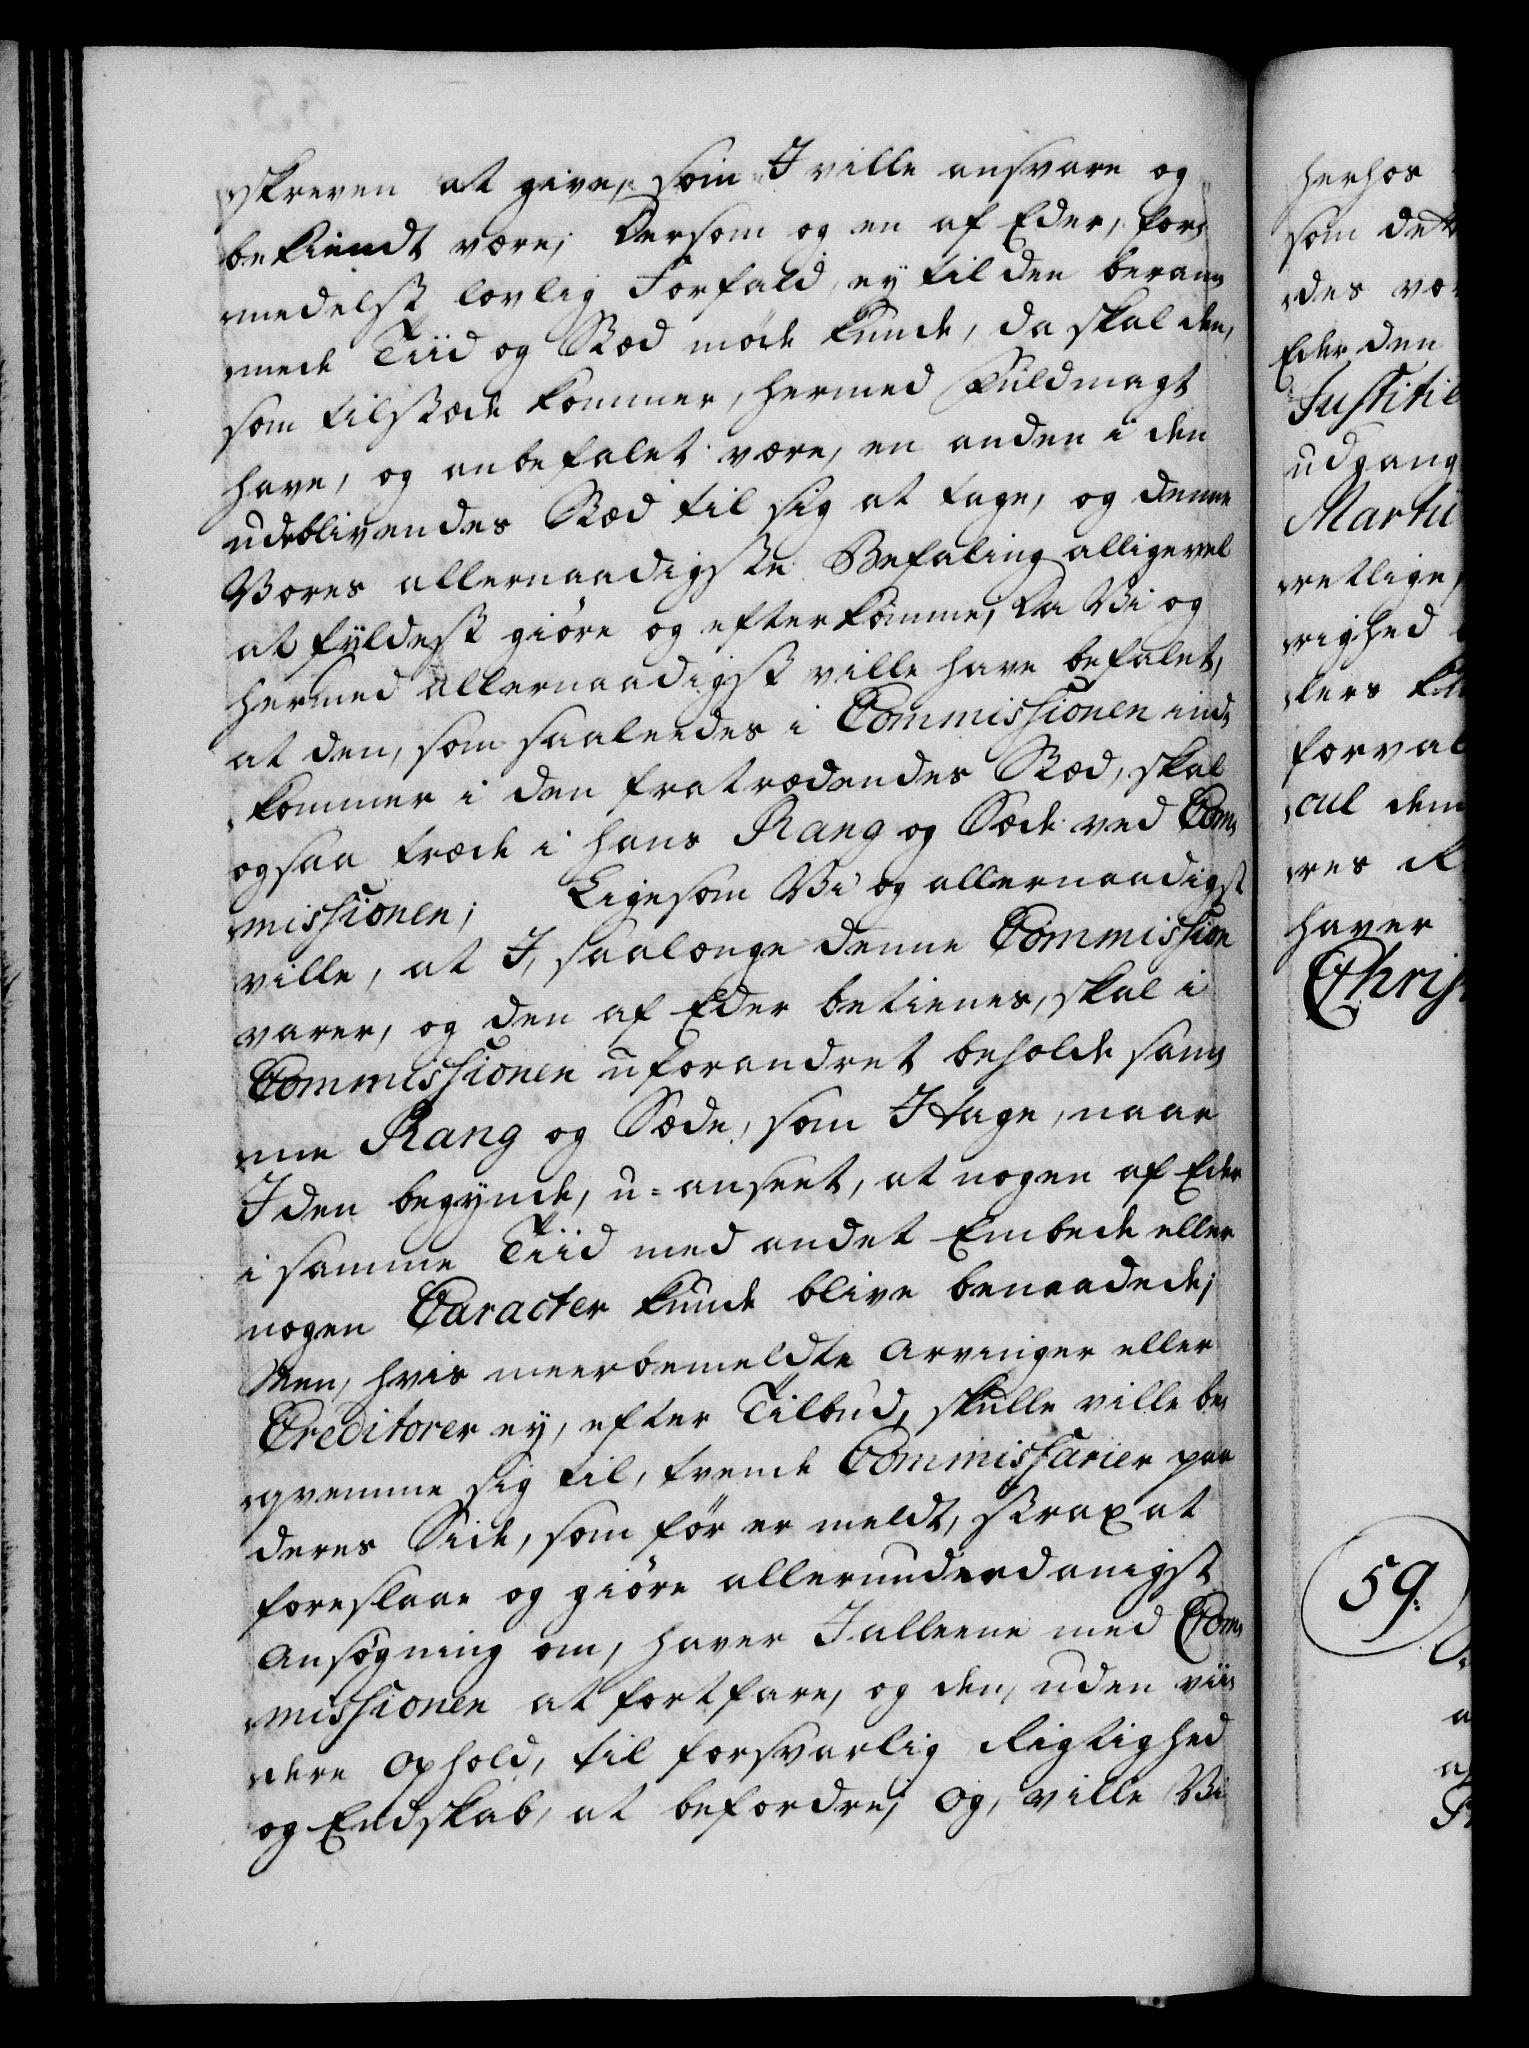 skreven at give, som I ville ansvare og
bekiendt være; Dersom og en af Eder, for-
medelst lovlig Forfald, ey til den beram-
mede Tiid og Stæd møde kunde, da skal den,
som tilstæde kommer, hermed Fuldmagt
have, og anbefalet være, en anden i den
udeblivendes Stæd til sig at tage, og denne
Vores allernaadigste Befaling alligevel
at fyldest giøre og efterkomme; Da Vi og
hermed allernaadigst ville have befalet,
at den, som saaledes i Commissionen ind-
kommer i den fratrædendes Stæd, skal
ogsaa træde i hans Rang og Sæde ved Com-
missionen; Ligesom Vi og allernaadigst
ville, at I, saalænge denne Commission
varer, og den af Eder betienes, skal i
Commissionen uforandret beholde sam-
me Rang og Sæde, som I tage, naar
I den begynde, u-anseet, at nogen af Eder
i samme Tiid med andet Embede eller
nogen Caracter kunde blive benaadede;
Men, hvis meerbemeldte Arvinger eller
Creditorer ey, efter Tilbud, skulle ville be-
qvemme sig til, tvende Commissarier paa
deres Side, som før er meldt, strax at
foreslaae og giøre allerunderdanigst
Ansøgning om, haver I alleene med Com-
missionen at fortfare, og den, uden vii-
dere Ophold, til forsvarlig Rigtighed
og Endskab, at befordre; Og, ville Vi
herhos
som
Eder den
udgang
Martii
retlige
righed
haver
59.